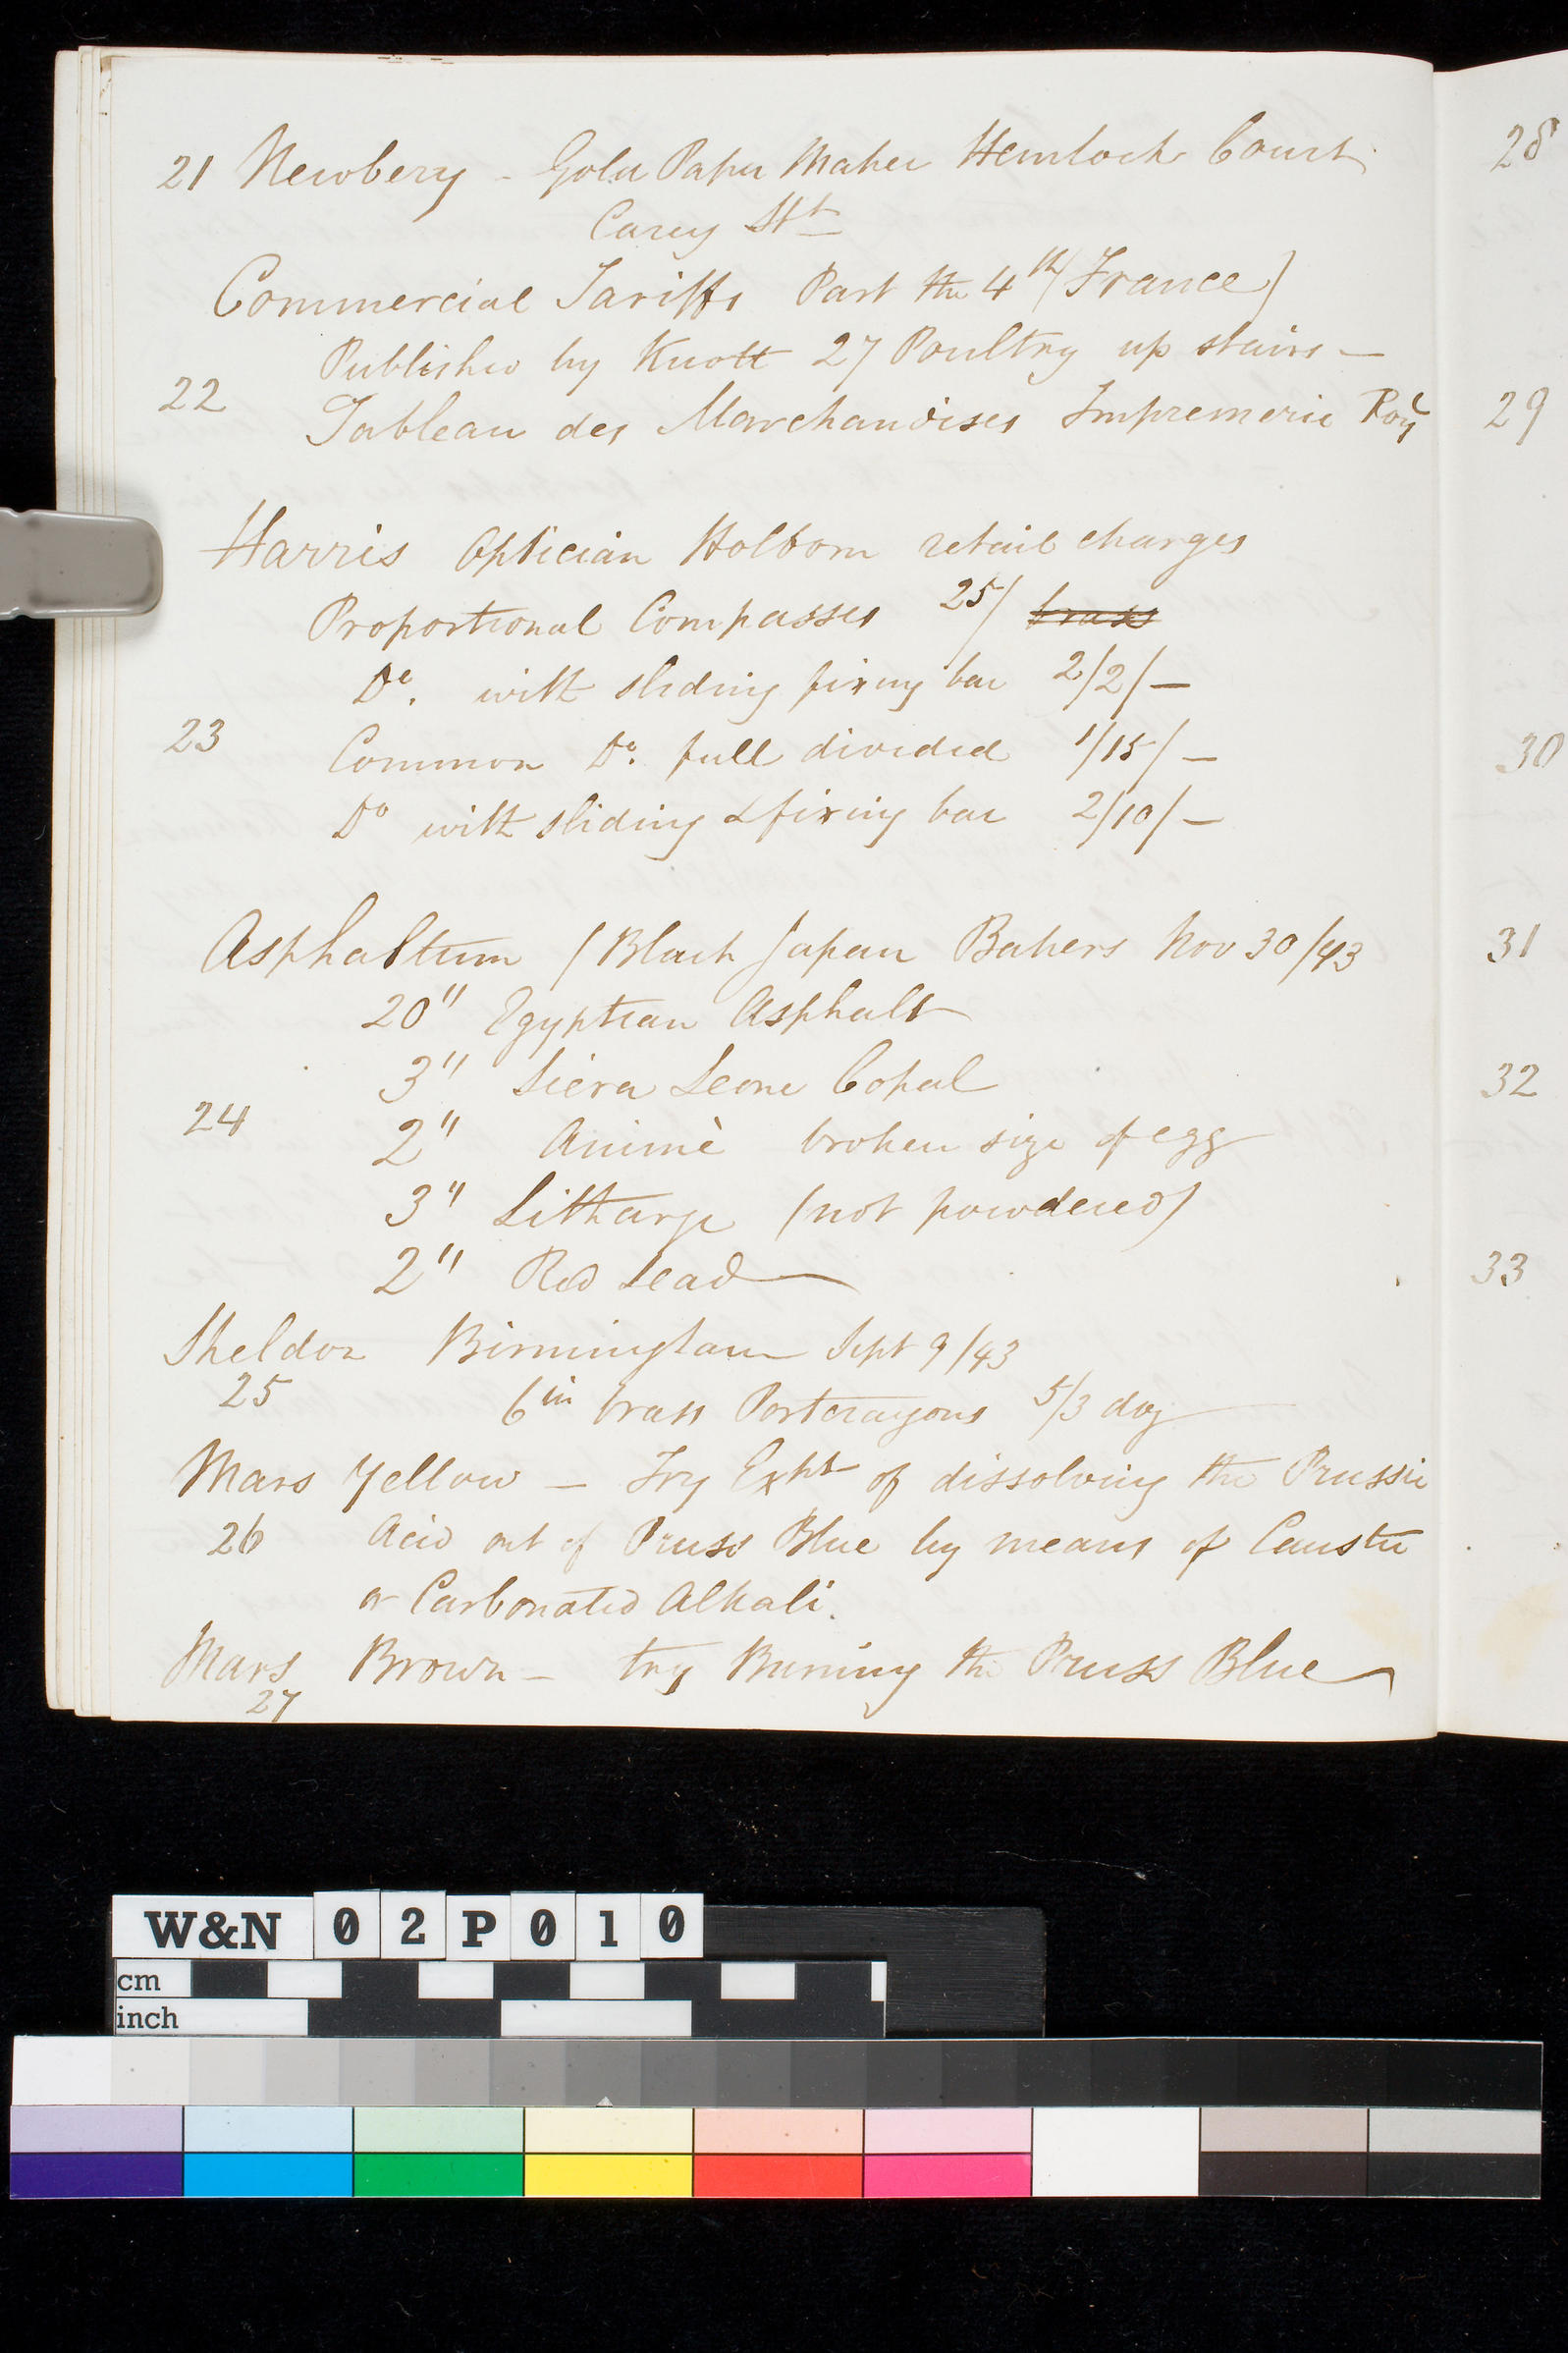 21 Newbery - Gold Paper Maker Hemlock Court
Carey St
Commercial Tariffs Part the 4th (France)
Published by Knott 27 Poultry up stairs —
22 Tableau des Marchandises Impremerie Royl
Harris Optician Holborn retail charges
Proportional Compasses 25/ brass
Do. with sliding fixing bar 2/2/—
23 Common Do. full divided 1/15/—
Do with sliding & fixing bar 2/10/—
Asphaltum (Black Japan Bakers Nov 30/43
20" Egyptian Asphalt
3" Siera Leone Copal
24 2" Animè broken size of egg
3" Litharge (not powdered)
2" Red Lead
Sheldon Birmingham Sept 9/43
25 6in brass Portcrayons 5/3 doz
Mars Yellow — Try Expt of dissolving the Prussic
26 Acid out of Pruss Blue by means of Caustic
or Carbonated Alkali.
Mars Brown — try Burning the Pruss Blue
27
28
29
30
31
32
33
W&N 02P010
cm
inch